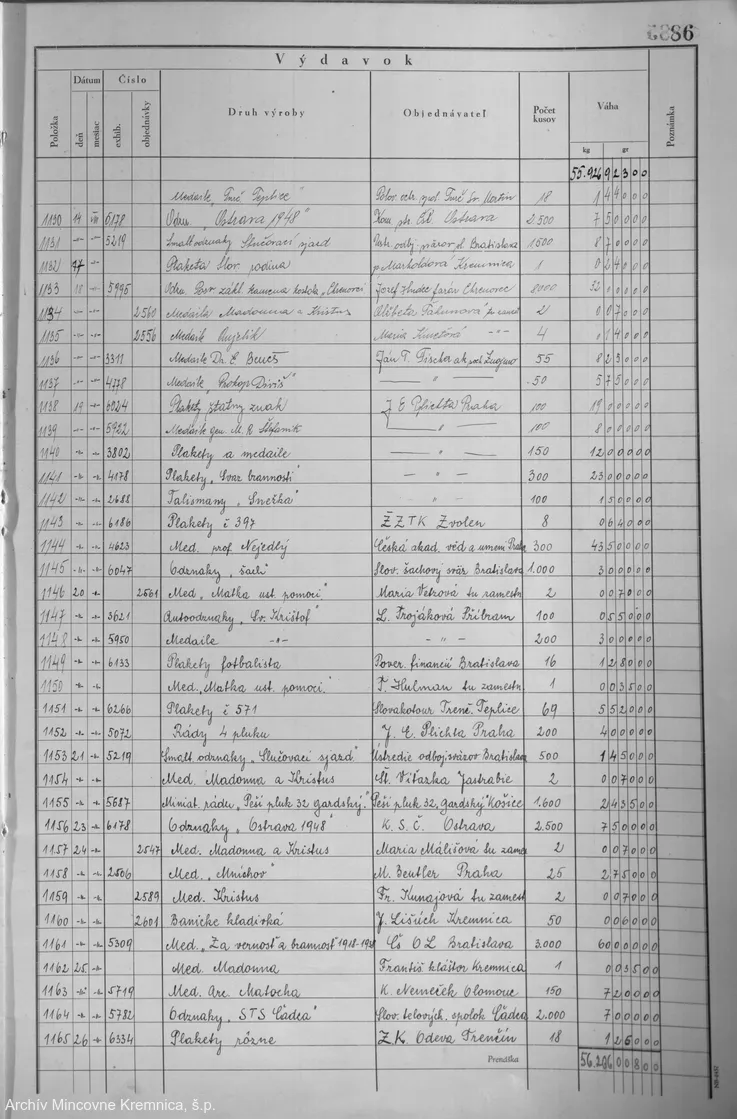 86
Výdavok
Položka Dátum deň mesiac Číslo exhib. objednávky Druh výroby Objednávateľ Počet kusov Váha kg gr Poznámka
55.926 9 2 3 0 0
Medaile 18 1 4 4 0 0
1130 14 VII 6178 Odzn. "Ostrava 1948" Ostrava 2.500 7 5 0 0 0 0
1131 -"- 5219 Smalt. odznaky Slučovací sjazd Bratislava 1500 8 7 0 0 0 0
1132 17 Plaketa Slov. rodina Kremnica 1 0 2 4 0 0
1133 18 -"- 5995 základ. kameňa kostola Jozef farár 8000 32 0 0 0 0 0
1134 -"- 2560 Medaila Madonna a Kristus Alžbeta 2 0 0 7 0 0 0
1135 -"- 2556 Medaile Anjelik Maria 4 0 1 4 0 0 0
1136 -"- 3311 Medaile Dr. E. Beneš Ján T. Fischer ak. soch. 55 8 2 3 0 0 0
1137 -"- 4778 Medaile "Prokop Diviš" — " — 50 5 7 5 0 0 0
1138 19 -"- 6024 Plakety štátny znak J. E. Plichta Praha 100 19 0 0 0 0 0
1139 -"- 5922 Medaile gen. M. R. Štefánik — " — 100 8 0 0 0 0 0
1140 -"- 3802 Plakety a medaile — " — 150 12 0 0 0 0 0
1141 -"- 4178 Plakety "Svaz brannosti" — " — 300 23 0 0 0 0 0
1142 -"- 2688 Talismany "Snežka" — " — 100 1 5 0 0 0 0
1143 -"- 6186 Plakety č 397 ŽZTK Zvolen 8 0 6 4 0 0 0
1144 -"- 4623 Med. prof. Nejedlý Česká akad. věd a umení Praha 300 43 5 0 0 0 0
1145 -"- 6047 Odznaky "šach" Slov. šachový sväz Bratislava 1.000 3 0 0 0 0 0
1146 20 -"- 2561 Med. "Matka ust. pomoci" Maria Vetrová tu zamestn. 2 0 0 7 0 0 0
1147 -"- 3621 Autoodznaky "Sv. Krištof" L. Trojáková Příbram 100 0 5 5 0 0 0
1148 -"- 5950 Medaile -"- — " — 200 3 0 0 0 0 0
1149 -"- 6133 Plakety fotbalista Pover. financií Bratislava 16 1 2 8 0 0 0
1150 -"- Med. "Matka ust. pomoci" F. Hulman tu zamestn. 1 0 0 3 5 0 0
1151 -"- 6266 Plakety č 571 Slovakotour Trenč. Teplice 69 5 5 2 0 0 0
1152 -"- 5072 Rády 4 pluku J. E. Plichta Praha 200 4 0 0 0 0 0
1153 21 -"- 5219 Smalt. odznaky "Slučovací sjazd" Ústredie odboj. sväzov Bratislava 500 1 4 5 0 0 0
1154 -"- Med. Madonna a Kristus Št. Víťazka Jastrabie 2 0 0 7 0 0 0
1155 -"- 5687 Miniat. rádu "Peší pluk 32 gardský" Peší pluk 32 "gardský" Košice 1.600 2 4 3 5 0 0
1156 23 -"- 6178 Odznaky "Ostrava 1948" K. S. Č. Ostrava 2.500 7 5 0 0 0 0
1157 24 -"- 2547 Med. Madonna a Kristus Maria Mališová tu zamest 2 0 0 7 0 0 0
1158 -"- 2506 Med. "Mníchov" M. Beutler Praha 25 2 7 5 0 0 0
1159 -"- 2589 Med. Kristus Fr. Kunajová tu zamest 2 0 0 7 0 0 0
1160 -"- 2601 Banícke kladivká J. Lišúch Kremnica 50 0 0 6 0 0 0
1161 -"- 5309 Med. "Za vernosť a brannosť 1918-1938 Čs OL Bratislava 3.000 60 0 0 0 0 0
1162 25 -"- Med. Madonna Františ. kláštor Kremnica 1 0 0 3 5 0 0
1163 -"- 5719 Med. Arc. Matocha K. Nemeček Olomouc 150 7 2 0 0 0 0
1164 -"- 5782 Odznaky "STS Čadca" Slov. telových. spolok Čadca 2.000 7 0 0 0 0 0
1165 26 -"- 6334 Plakety rôzne Z.K. Odeva Trenčín 18 1 2 6 0 0 0
Prenáška 56.286 0 0 8 0 0
Archív Mincovne Kremnica, š.p.